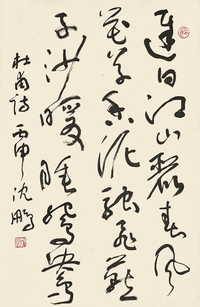 遲日江山麗春風
花草香泥融飛燕
子沙暖睡鴛鴦
杜甫詩 丙申 沈鵬